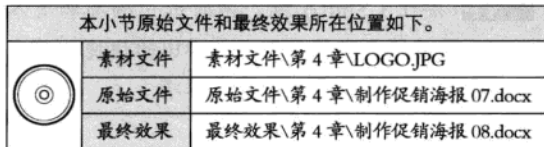 本小节原始文件和最终效果所在位置如下。
素材文件 素材文件\第 4 章\LOGO.JPG
原始文件 原始文件\第 4 章\制作促销海报 07.docx
最终效果 最终效果\第 4 章\制作促销海报 08.docx